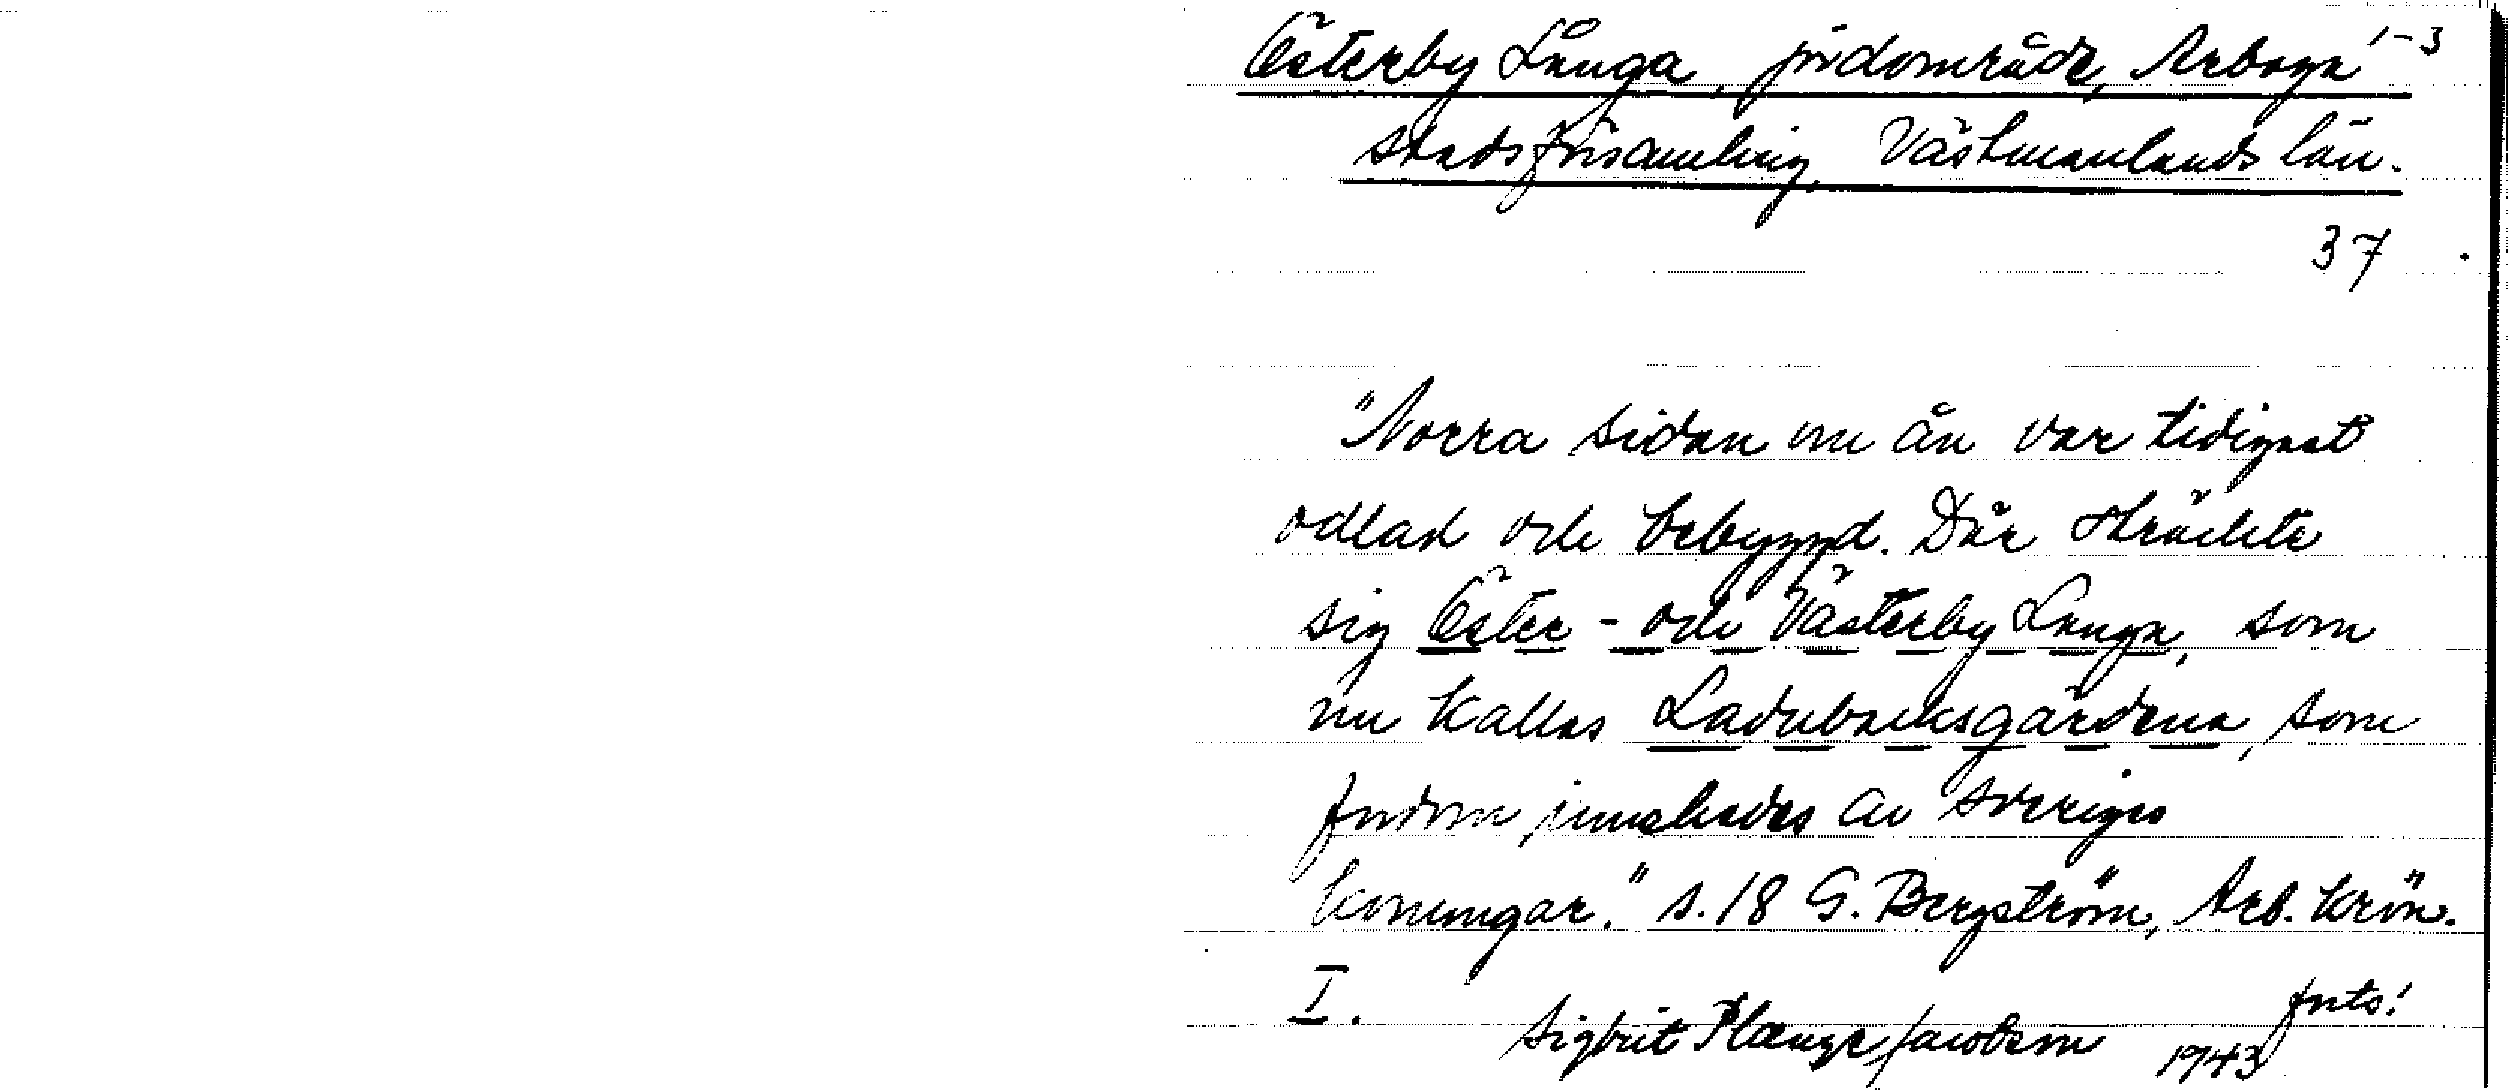 Österby Långa, jordområde, Arboga 1-3
stadsförsamling, Västmanlands län.
37
"Norra sidan om ån var tidigast
odlad och bebyggd. Där sträckte
sig Öster- och Västerby Långa, som
nu kallas Ladubacksgärdena, som
fordom innehades av Sveriges
konungar." s. 18 G. Bergström, Arb. krön.
I.
forts!
Sigbrit Plænge Jacobson 1943